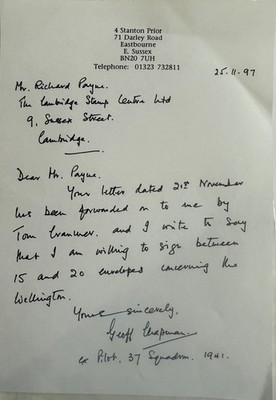 4 Stanton Prior
71 Darley Road
Eastbourne
E. Sussex
BN20 7UH
Telephone: 01323 732811
25.11.97
Mr. Richard Payne.
The Cambridge Stamp Centre Ltd
9, Sussex Street.
Cambridge.
Dear Mr. Payne.
Your letter dated 21st November
has been forwarded on to me by
Tom Cranmer. and I write to say
that I am willing to sign between
15 and 20 envelopes concerning the
Wellington.
Yours sincerely.
Geoff Chapman.
ex Pilot. 37 Squadron. 1941.